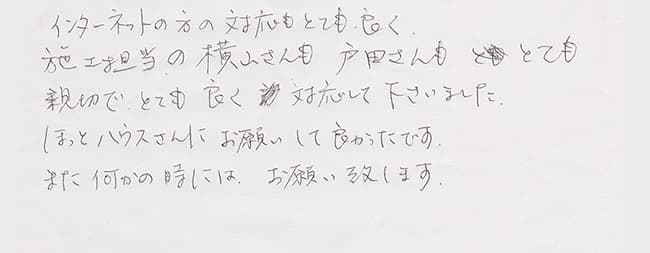 インターネットの方の対応もとても良く
施工担当の横山さんも 戸田さんも とても
親切で、とても 良く 対応して下さいました。
ほっとハウスさんに お願いして良かったです。
また何かの時には、お願い致します。